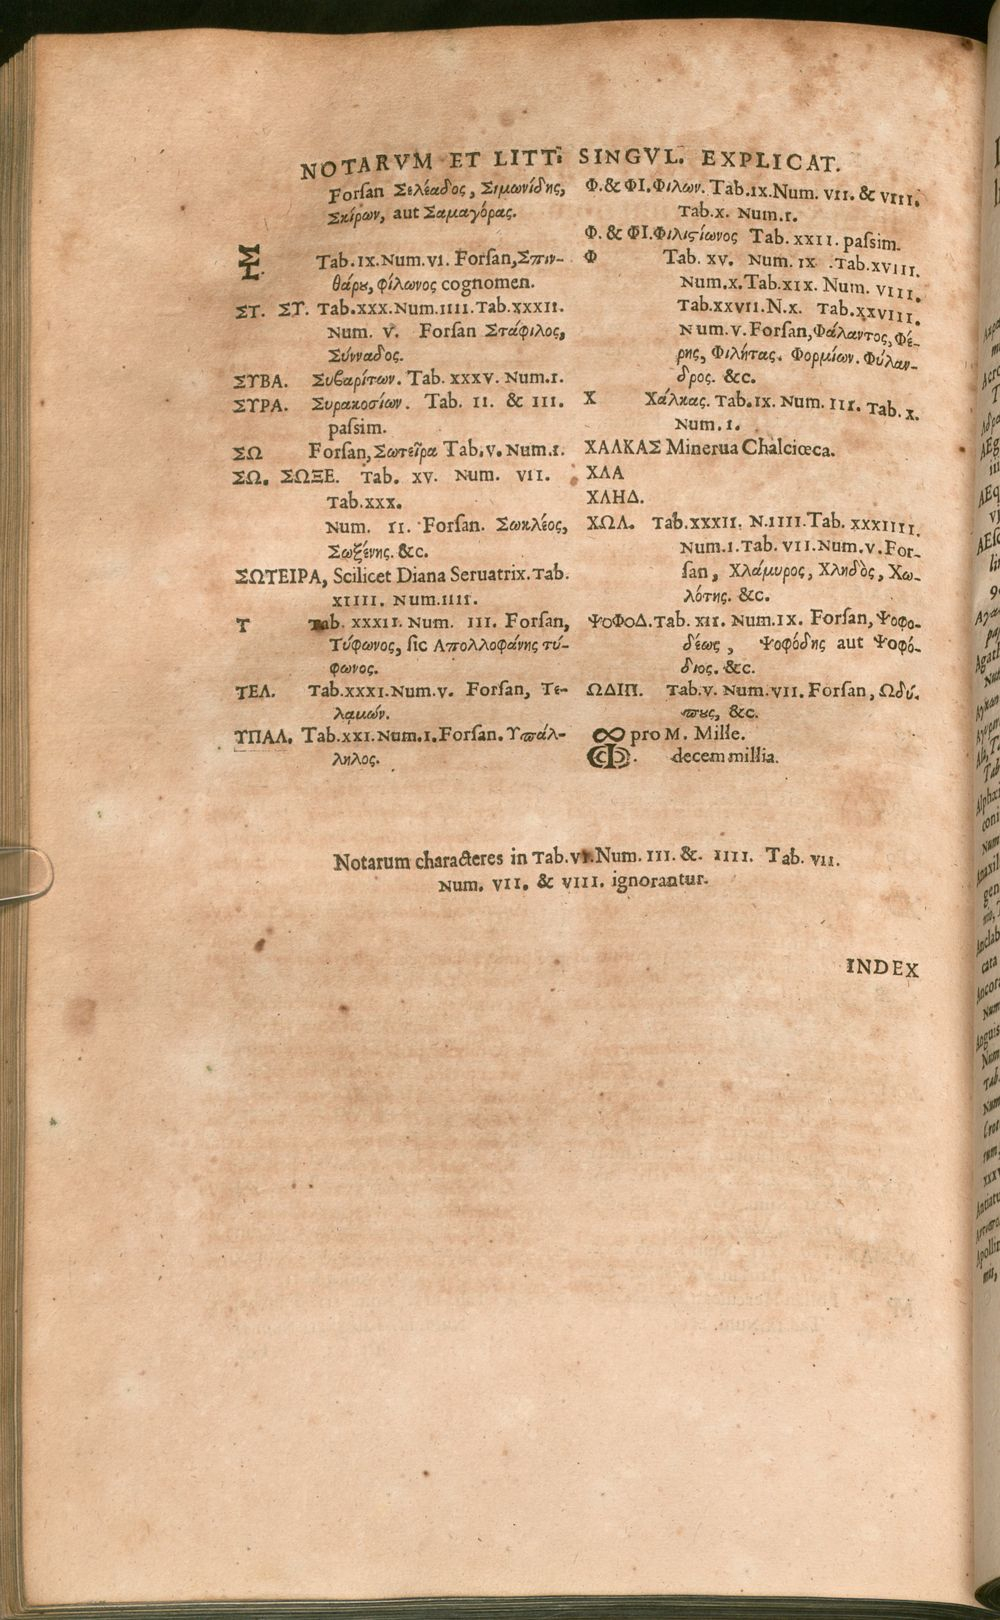 NOTARVM ET LITT. SINGVL. EXPLICAT.
Forſan Σελέαδος, Σιμωνίδης,
Σκίρων, aut Σαμαγόρας.
Tab.IX.Num.VI. Forſan, Σπιν-
θάρȣ, φίλωνος cognomen.
ΣΤ. ΣΥ. Tab.XXX.Num.IIII.Tab.XXXII.
Num. V. Forſan Στάφιλος,
Σύνναδος.
ΣΥΒΑ. Συβαρίτων. Tab. XXXV. Num.I.
ΣΥΡΑ. Συρακοσίων. Tab. II. & III.
paſsim.
ΣΩ Forſan, Σωτεῖρα Tab.V. Num.I.
ΣΩ. ΣΩΞΕ. Tab. XV. Num. VII.
Tab.XXX.
Num. II. Forſan. Σωκλέος,
Σωξένης. &c.
ΣΩΤΕΙΡΑ, Scilicet Diana Seruatrix. Tab.
XIIII. Num.IIII.
Τ Tab. XXXII. Num. III. Forſan,
Τύφωνος, ſic Απολλοφάνης τύ-
φωνος.
ΤΕΛ. Tab.XXXI.Num.V. Forſan, Τε-
λαμών.
ΥΠΑΛ. Tab.XXI.Num.I.Forſan. Υπάλ-
ληλος.
Φ.& ΦΙ.Φιλων. Tab.IX.Num. VII. & VIII.
Tab.X. Num.I.
Φ. & ΦΙ.Φιλιςίωνος Tab. XXII. paſsim.
Φ Tab. XV. Num. IX .Tab.XVIII.
Num.X.Tab.XIX. Num. VIII.
Tab.XXVII.N.X. Tab.XXVIII.
Num.V.Forſan, Φάλαντος, Φέ-
ρης, Φιλήτας. Φορμίων. Φύλαν-
δρος. &c.
Χ Χάλκας. Tab.IX. Num. III. Tab. X.
Num. I.
ΧΑΛΚΑΣ Minerua Chalciœca.
ΧΛΑ
ΧΛΗΔ.
ΧΩΛ. Tab.XXXII. N.IIII.Tab. XXXIIII.
Num.I.Tab. VII.Num.V.For-
ſan, Χλάμυρος, Χληδὸς, Χω-
λότης. &c.
ΨΟΦΟΔ.Tab. XII. Num.IX. Forſan, Ψοφο-
δέως, Ψοφόδης aut Ψοφό-
διος. &c.
ΩΔΙΠ. Tab.V. Num.VII. Forſan, Ωδύ-
πȣς, &c.
∞ pro M. Mille.
ↂ. decem millia.
Notarum characteres in Tab.VI.Num. III. &. IIII. Tab. VII.
Num. VII. & VIII. ignorantur.
INDEX